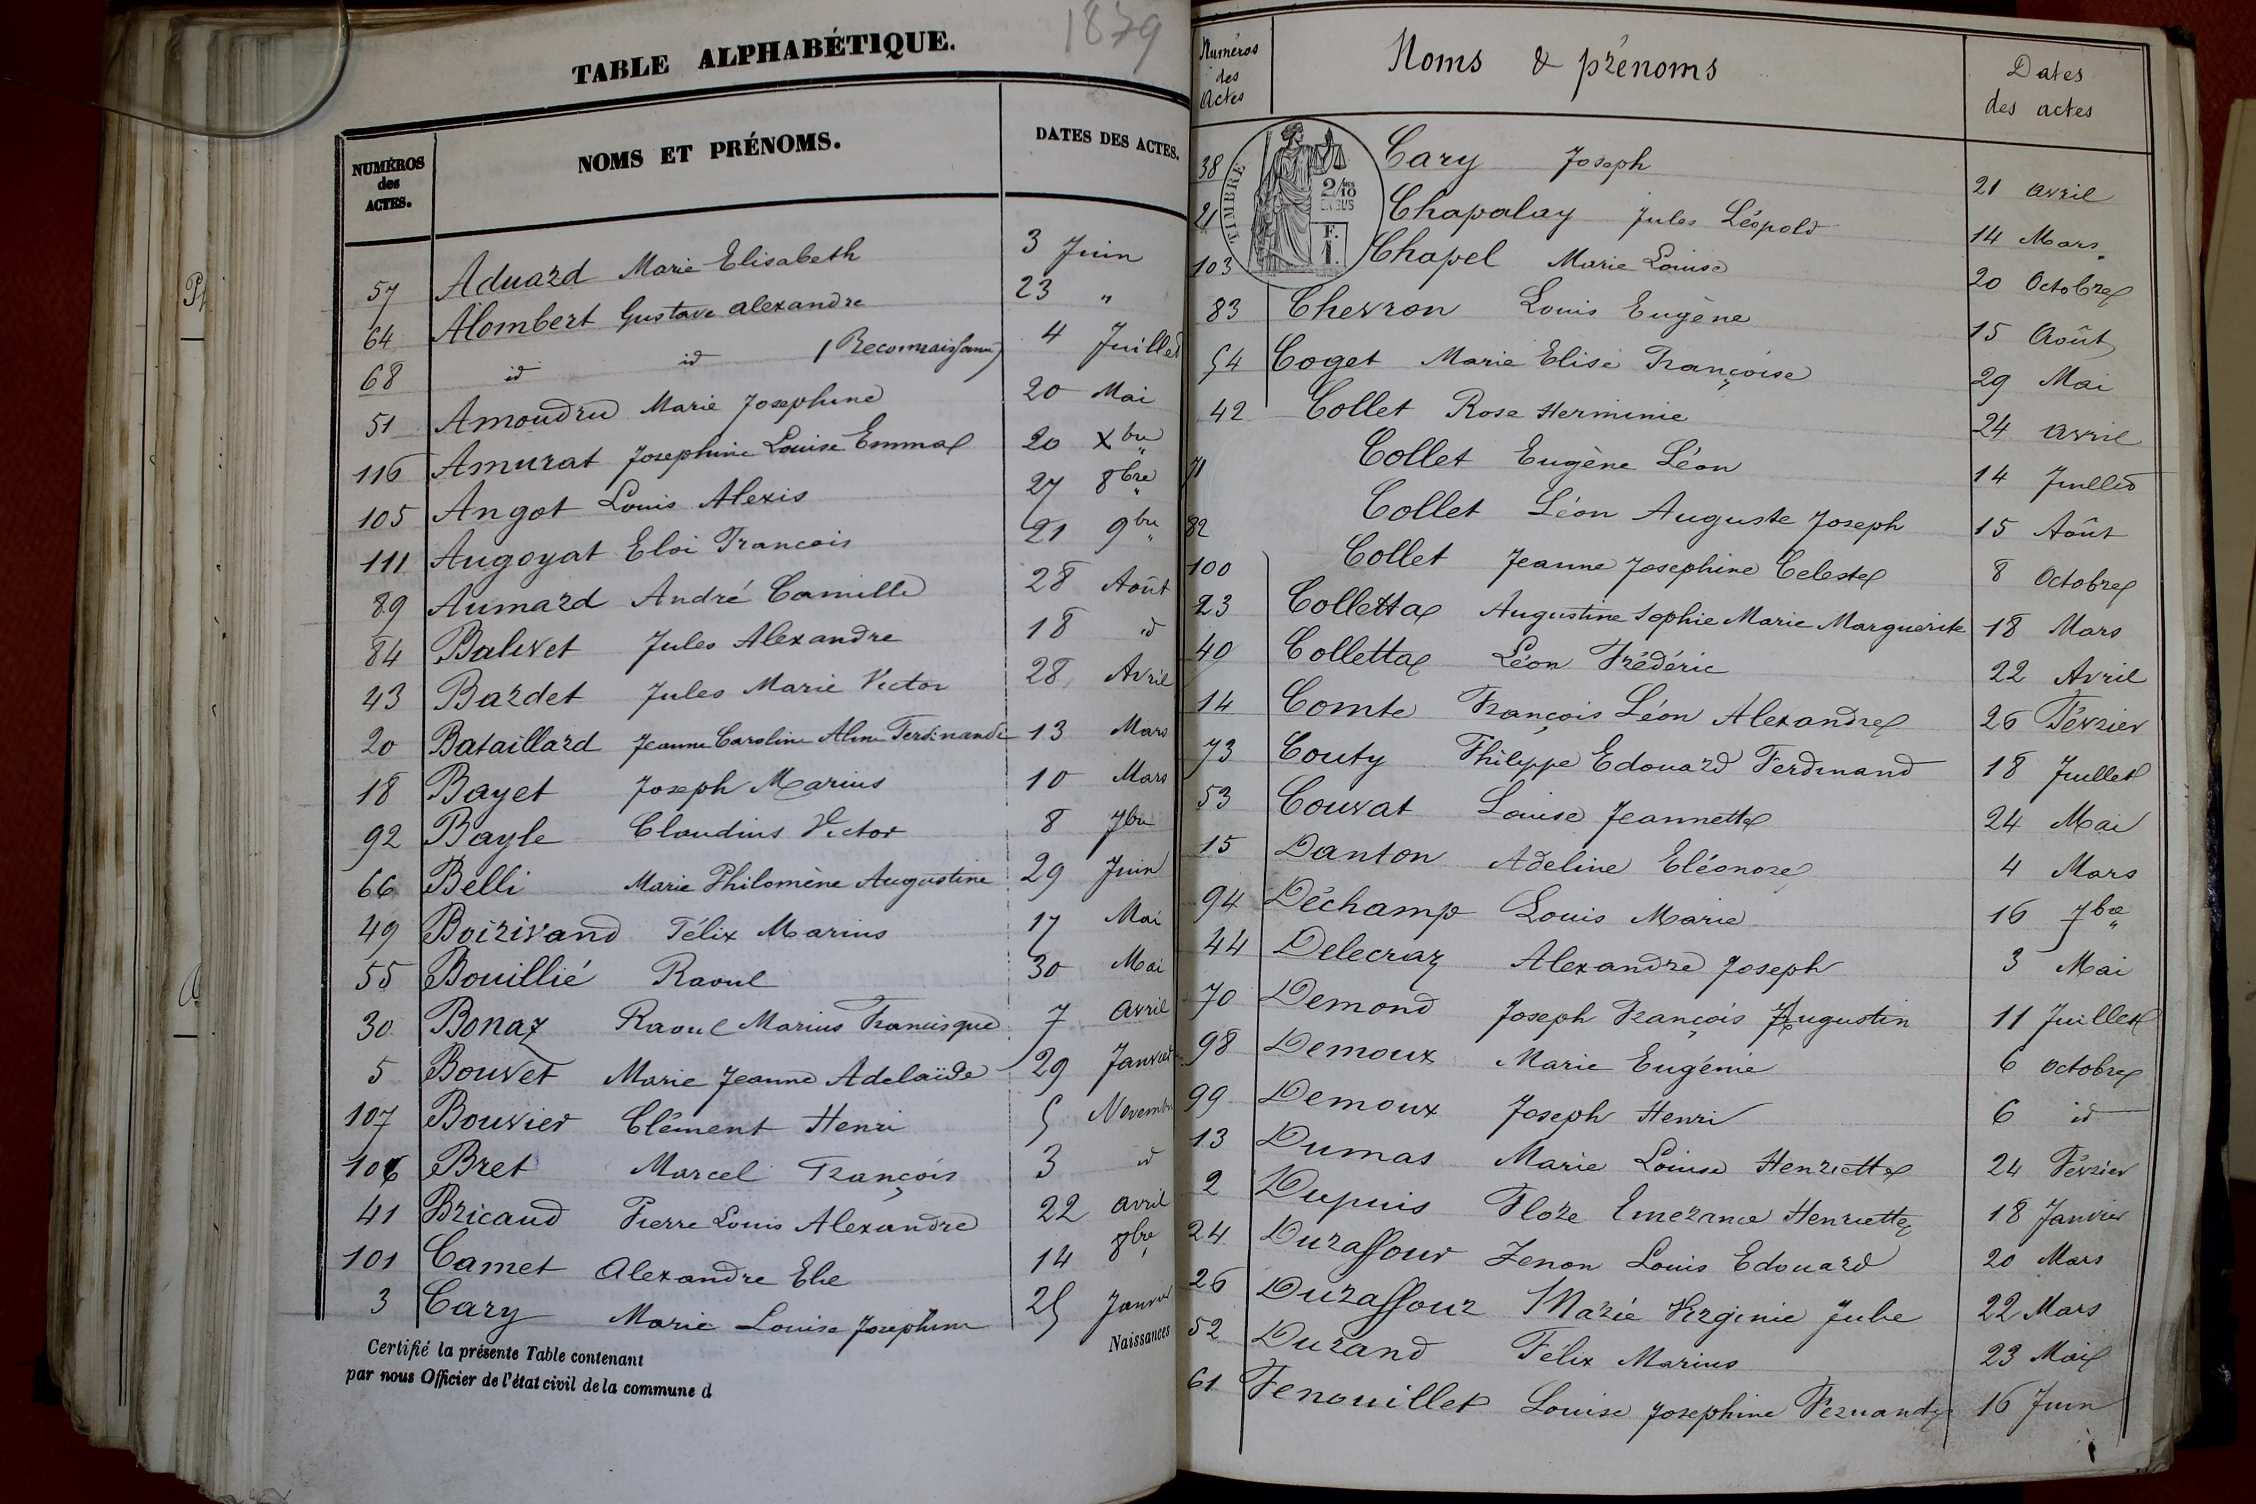 1879
TABLE ALPHABÉTIQUE.
NUMÉROS des ACTES. NOMS ET PRÉNOMS. DATES DES ACTES.
57 Aduard Marie Elisabeth 3 Juin
64 Alombert Gustave alexandre 23 "
68 id id (Reconnaissance) 4 Juillet
51 Amoudru Marie Josephine 20 Mai
116 Amurat Josephine Louise Emma 20 Xbre
105 Angot Louis Alexis 27 8bre
111 Augoyat Eloi Francois 21 9bre
89 Aumard André Camille 28 Août
84 Balivet Jules Alexandre 18 id
43 Bardet Jules Marie Victor 28 Avril
20 Bataillard Jeanne Caroline Aline Ferdinande 13 Mars
18 Bayet Joseph Marius 10 Mars
92 Bayle Claudius Victor 8 7bre
66 Belli Marie Philomène Augustine 29 Juin
49 Boirivand Félix Marius 17 Mai
55 Bouillié Raoul 30 Mai
30 Bonaz Raoul Marius Francisque 7 avril
5 Bouvet Marie Jeanne Adelaïde 29 Janvier
107 Bouvier Clément Henri 5 Novembre
106 Bret Marcel François 3 id
41 Bricaud Pierre Louis Alexandre 22 avril
101 Camet Alexandre Elie 14 8bre
3 Cary Marie Louise Josephine 25 Janvier
Certifié la présente Table contenant Naissances
par nous Officier de l'état civil de la commune d
Numéros des Actes Noms & prénoms Dates des actes
TIMBRE
2/10
EN SUS
F.
1.
38 Cary Joseph 21 avril
21 Chapalay Jules Léopold 14 Mars
103 Chapel Marie Louise 20 Octobre
83 Chevron Louis Eugène 15 Août
54 Coget Marie Elise Françoise 29 Mai
42 Collet Rose Herminie 24 avril
71 Collet Eugène Léon 14 Juillet
82 Collet Léon Auguste Joseph 15 Août
100 Collet Jeanne Josephine Celeste 8 Octobre
23 Colletta Augustine Sophie Marie Marguerite 18 Mars
40 Colletta Léon Frédéric 22 Avril
14 Comte François Léon Alexandre 26 Février
73 Couty Philippe Edouard Ferdinand 18 Juillet
53 Couvat Louise Jeannette 24 Mai
15 Danton Adeline Eléonore 4 Mars
94 Déchamp Louis Marie 16 7bre
44 Delecraz Alexandre Joseph 3 Mai
70 Demond Joseph François Augustin 11 Juillet
98 Demoux Marie Eugénie 6 octobre
99 Demoux Joseph Henri 6 id
13 Dumas Marie Louise Henriette 24 Février
2 Dupuis Flore Emerance Henriette 18 Janvier
24 Duraffour Zenon Louis Edouard 20 Mars
26 Duraffour Marie Virginie Julie 22 Mars
52 Durand Félix Marius 23 Mai
61 Fenouillet Louise Josephine Fernande 16 Juin